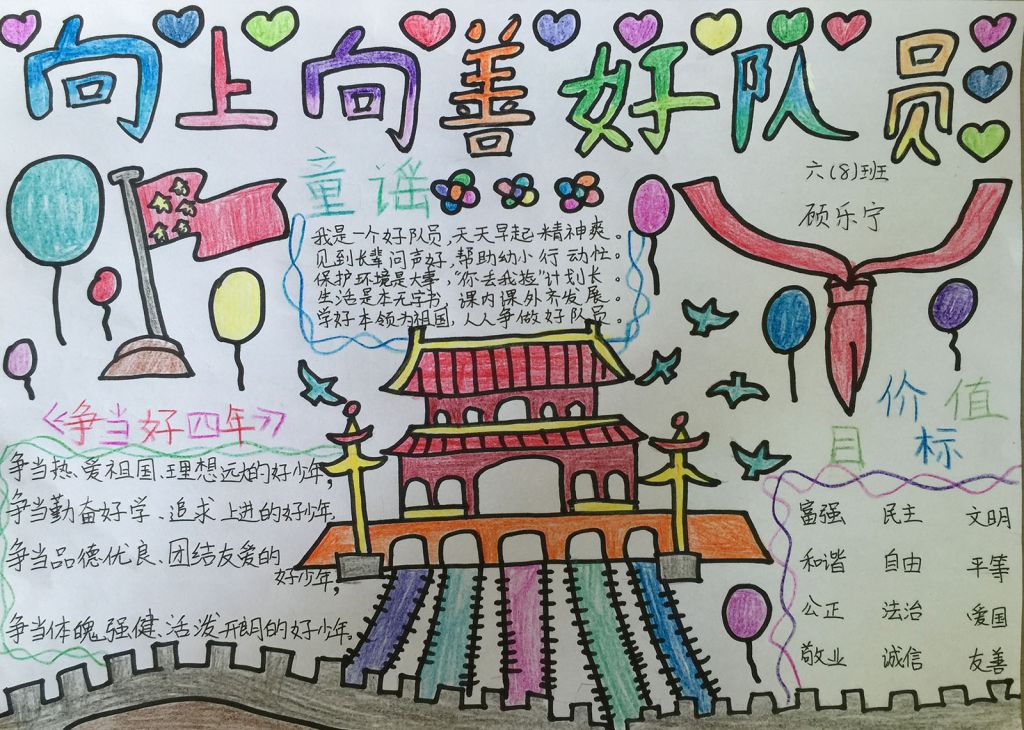 向上向善好队员
六(8)班
硕乐宁
童谣
我是一个好队员,天天早起精神爽。
见到长辈问声好,帮助幼小行动忙。
保护环境是大事,“你丢我捡”计划长。
生活是本无字书,课内课外齐发展。
学好本领为祖国,人人争做好队员。
《争当好四年》
争当热爱祖国、理想远大的好少年,
争当勤奋好学、追求上进的好少年,
争当品德优良、团结友爱的
好少年,
争当体魄强健、活泼开朗的好少年。
价值
目标
富强 民主 文明
和谐 自由 平等
公正 法治 爱国
敬业 诚信 友善